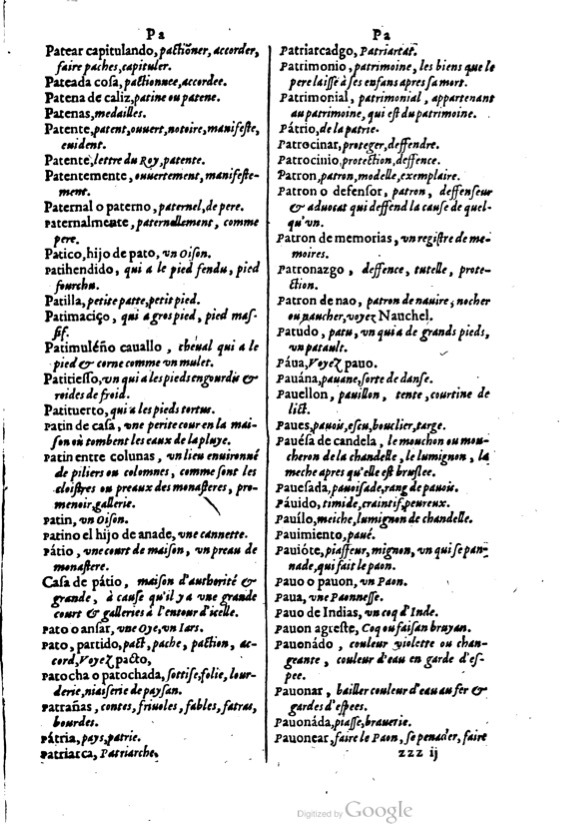 Pa
Patear capitulando, pactiõner, accorder,
faire paches, capituler.
Pateada coſa, pactionnee, accordee.
Patena de caliz, patine ou patene.
Patenas, medailles.
Patente, patent, ouuert, notoire, manifeſte,
euident.
Patente, lettre du Roy, patente.
Patentemente, ouuertement, manifeſte-
ment.
Paternal o paterno, paternel, de pere.
Paternalmente, paternellement, comme
pere.
Patico, hijo de pato, vn Oiſon.
Patihendido, qui a le pied fendu, pied
fourchu.
Patilla, petite patte, petit pied.
Patimaciço, qui a gros pied, pied maſ-
ſif.
Patimuléño cauallo, cheual qui a le
pied & corne comme vn mulet.
Patitieſſo, vn qui a les pieds engourdis &
roides de froid.
Patituerto, qui a les pieds tortus.
Patin de caſa, vne petite cour en la mai-
ſon où tombent les eaux de la pluye.
Patin entre colunas, vn lieu enuironné
de piliers ou colomnes, comme ſont les
cloiſtres ou preaux des monaſteres, pro-
menoir, gallerie.
Patin, vn Oiſon.
Patino el hijo de anade, vne cannette.
Pátio, vne court de maiſon, vn preau de
monaſtere.
Caſa de pátio, maiſon d'authorité &
grande, à cauſe qu'il y a vne grande
court & galleries à l'entour d'icelle.
Pato o anſar, vne Oye, vn Iars.
Pato, partido, pact, pache, paction, ac-
cord, Voyez pacto,
Patocha o patochada, ſottiſe, folie, lour-
derie, niaiſerie de payſan.
Patrañas, contes, friuoles, fables, fatras,
bourdes.
Pátria, pays, patrie.
Patriarca, Patriarche.
Pa
Patriarcadgo, Patriartat.
Patrimonio, patrimoine, les biens que le
pere laiſſe à ſes enfans apres ſa mort.
Patrimonial, patrimonial, appartenant
au patrimoine, qui eſt du patrimoine.
Pátrio, de la patrie.
Patrocinar, proteger, deffendre.
Patrocinio, protection, deffence.
Patron, patron, modelle, exemplaire.
Patron o defenſor, patron, deffenſeur
& aduocat qui deffend la cauſe de quel-
qu'vn.
Patron de memorias, vn regiſtre de me-
moires.
Patronazgo, deffence, tutelle, prote-
ction.
Patron de nao, patron de nauire, nocher
ou naucher, voyez Nauchel.
Patudo, patu, vn qui a de grands pieds,
vn patault.
Páua, Voyez pauo.
Pauána, pauane, ſorte de danſe.
Pauellon, pauillon, tente, courtine de
lict.
Paues, pauois, eſcu, bouclier, targe.
Pauéſa de candela, le mouchon ou mou-
cheron de la chandelle, le lumignon, la
meche apres qu'elle eſt bruſlee.
Paueſada, pauoiſade, rang de pauois.
Páuido, timide, craintif, peureux.
Pauílo, meiche, lumignon de chandelle.
Pauimiento, paué.
Pauióte, piaffeur, mignon, vn qui ſe pan-
nade, qui fait le paon.
Pauo o pauon, vn Paon.
Paua, vne Paonneſſe.
Pauo de Indias, vn coq d'Inde.
Pauon agreſte, Coq ou faiſan bruyan.
Pauonádo, couleur violette ou chan-
geante, couleur d'eau en garde d'eſ-
pee.
Pauonar, bailler couleur d'eau au fer &
gardes d'eſpees.
Pauonáda, piaffe, brauerie.
Pauonear, faire le Paon, ſe penader, faire
zzz ij
Digitized by Google